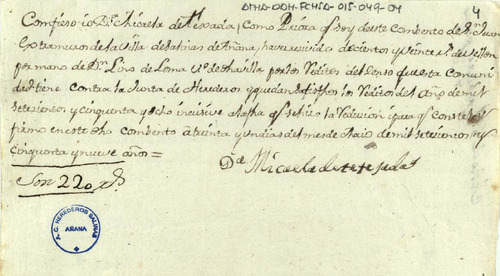 ATHA-DDH-FCHSA-015-049-04
4
Confieso io Dª Micaela de Texada, como Priora qᵉ soy de este Combento de Sⁿ Juan
extramuros de la villa de Salinas de Añana, haver recivido docientos y veinte rˢ de vellon
por mano de Dⁿ Lino de Loma vº de dha villa por los Reditos del Censo que esta Comuni
dad tiene contra la Junta de Herederos y quedan satisfhos los Reditos del año de mil
setezientos y cinquenta y ocho inclusive
para qᵉ conste lo
firmo en este dho combento a treinta y un dias del mes de Maio de mil setezientos y
cinquenta y nueve años =
Dª Micaela de texada
Son 220 rˢ
A.C. HEREDEROS SALINAS
AÑANA